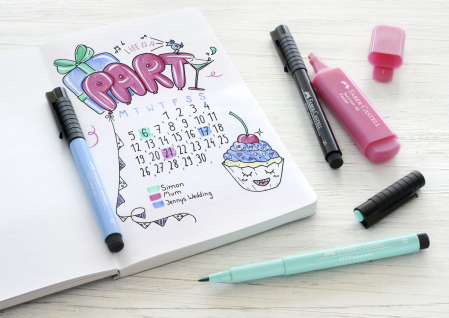 LIFE IS A
PARTY
M T W T F S S
1. 2. 3. 4.
5. 6. 7. 8. 9. 10. 11.
12. 13. 14. 15. 16. 17. 18.
19. 20. 21. 22. 23. 24. 25.
26. 27. 28. 29. 30.
Simon
Mum
Jennys Wedding
FABER-CASTELL
FABER-CASTELL
FABER-CASTELL